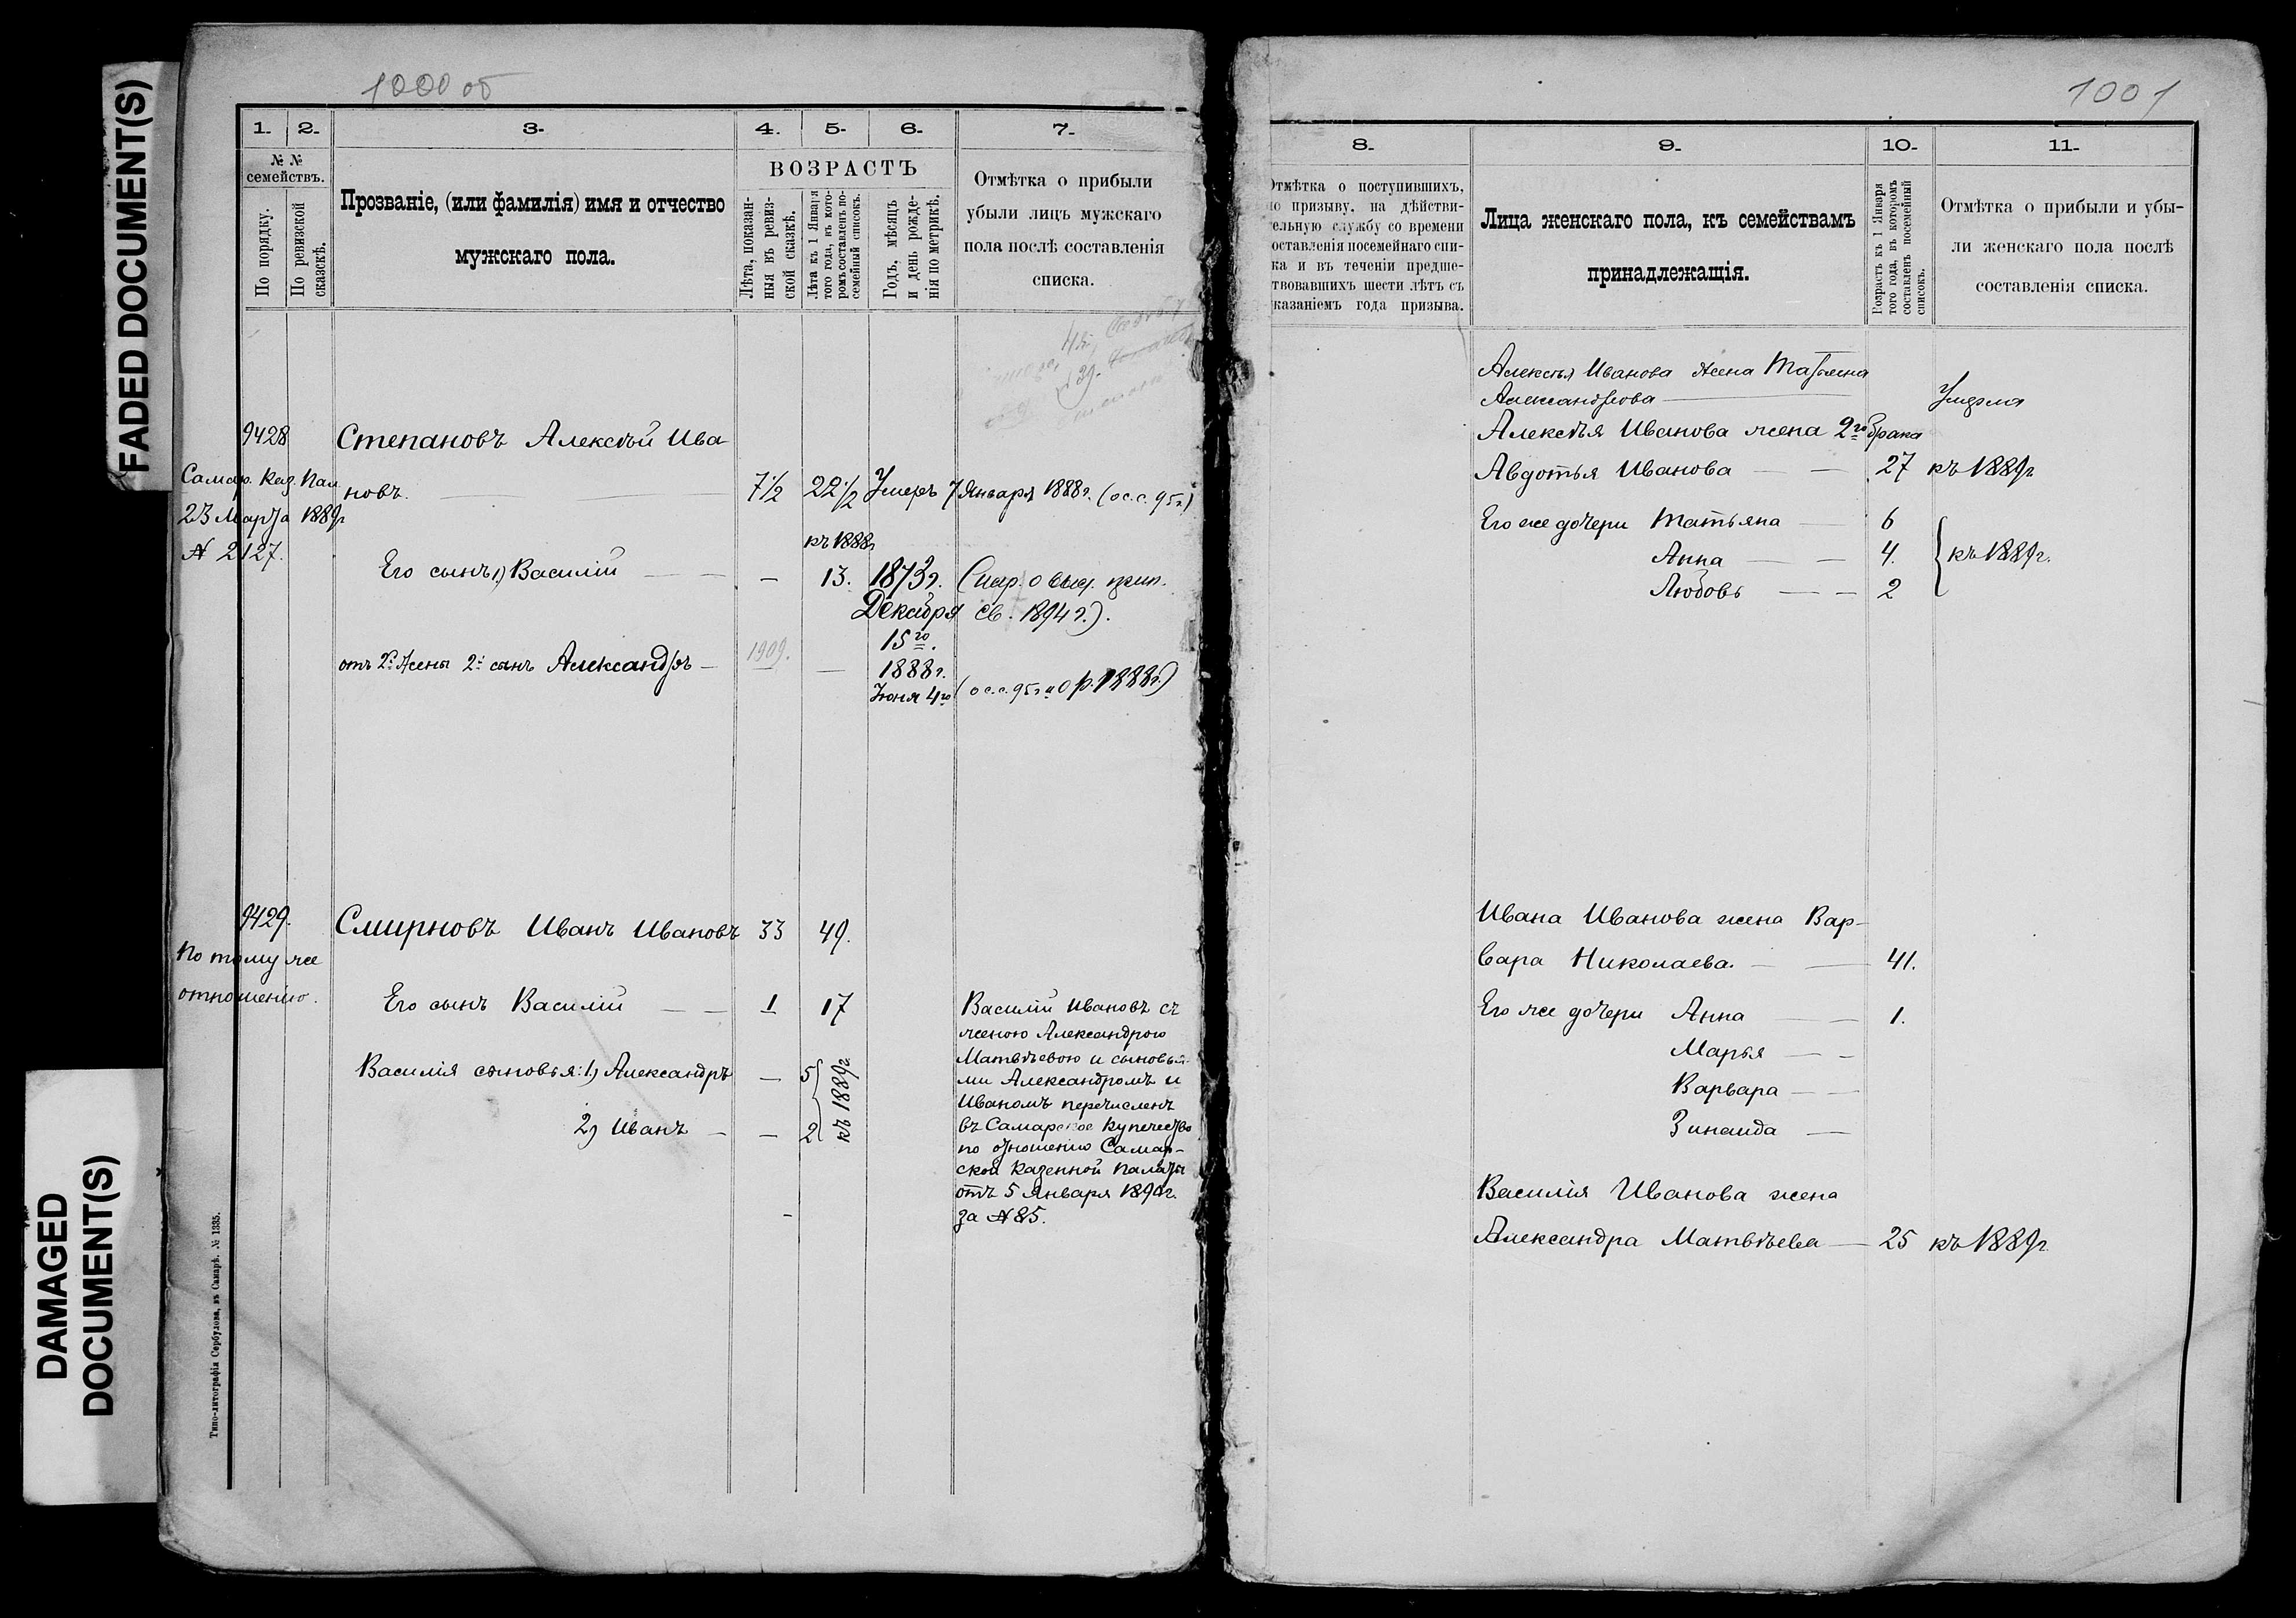 FADED DOCUMENT(S)
DAMAGED
DOCUMENT(S)
1000 об
1.
2.
3.
4.
5.
6.
7.
№ №
семействъ.
По порядку.
По ревизской
сказскѣ.
Прозваніе, (или фамилія) имя и отчество
мужскаго пола.
ВОЗРАСТЪ
Лѣта, показан-
ныя въ ревиз-
ской сказкѣ.
Лѣта къ 1 Января
того года, въ кото-
ромъ составленъ по-
семейный списокъ.
Годъ, мѣсяцъ
и день рожде-
нія по метрикѣ.
Отмѣтка о прибыли
убыли лицъ мужскаго
пола послѣ составленія
списка.
9428
Степановъ Алексѣй Ива
Самар. Каз. Пал
новъ.
7½
22½
Умеръ 7 Января 1888г. (о с.с. 95г.)
23 Марта 1889г
№ 2127.
къ 1888г
Его сынъ 1) Василій
13.
1873г.
Декабря
15го.
св. 1894г.).
отъ 2й жены 2й сынъ Александръ
1909.
1888г.
Іюня 4го
(о с.с. 95г и о р. 1888г.)
9429.
Смирновъ Иванъ Ивановъ
33
49.
По тому же
отношенію.
Его сынъ Василій
1
17
Василія сыновья: 1) Александръ
5
2) Иванъ
2
къ 1889г.
Василій Ивановъ съ
женою Александрою
Матвѣевою и сыновья-
ми Александромъ и
Иваномъ перечисленъ
въ Самарское Купечество
по отношенію Самар-
ской Казенной Палаты
отъ 5 Января 1890г.
за № 85.
Типо-литографія Сербулова, въ Самарѣ. № 1335.
1001
8.
9.
10.
11.
Отмѣтка о поступившихъ,
по призыву, на дѣйстви-
тельную службу со времени
составленія посемейнаго спи-
ска и въ теченіи предше-
ствовавшихъ шести лѣтъ съ
указаніемъ года призыва.
Лица женскаго пола, къ семействамъ
принадлежащія.
Возрастъ къ 1 Января
того года, въ которомъ
составленъ посемейный
списокъ.
Отмѣтка о прибыли и убы-
ли женскаго пола послѣ
составленія списка.
Алексѣя Иванова жена Татьяна
Александрова
Умерла
Алексѣя Иванова жена 2го брака
Авдотья Иванова
27
къ 1889г
Его же дочери Татьяна
6
Анна
4.
къ 1889г.
Любовь
2
Ивана Иванова жена Вар-
вара Николаева.
41.
Его же дочери Анна
1.
Марья
Варвара
Зинаида
Василія Иванова жена
Александра Матвѣева
25
къ 1889г.